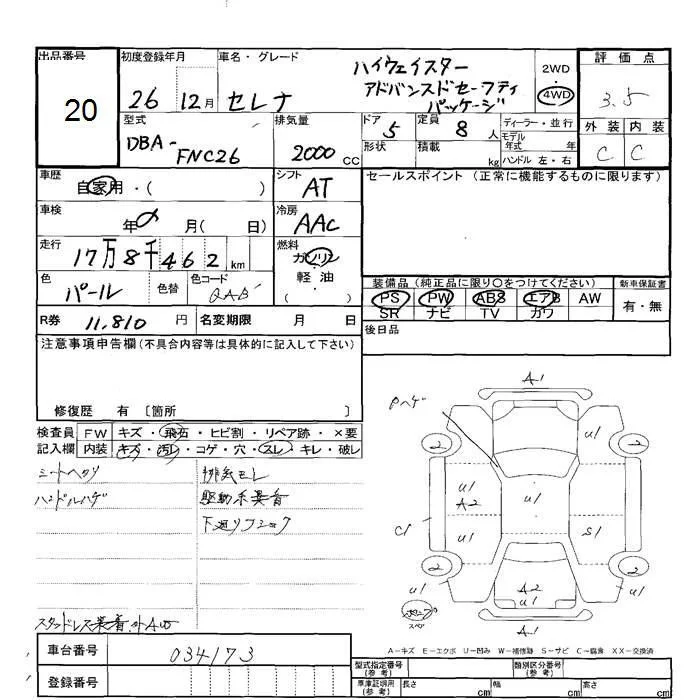 出品番号
20
初度登録年月
26 12月
車名・グレード
セレナ
ハイウェイスター
アドバンスドセーフティ
パッケージ
2WD
4WD
評価点
3.5
外装 内装
C C
型式
DBA-
FNC26
排気量
2000 CC
ドア
5
定員
8 人
形状
積載
kg
ディーラー・並行
モデル
年式 年
ハンドル 左・右
車歴
自家用・( )
シフト
AT
セールスポイント (正常に機能するものに限ります)
車検
年 月( 日)
冷房
AAC
走行
17万8千462 km
燃料
ガソリン
軽油
( )
色
パール
色替
色コード
QAB
装備品 (純正品に限り○をつけてください)
PS PW ABS エアB AW
SR ナビ TV カワ
新車保証書
有・無
R券 11,810 円
名変期限 月 日
後日品
注意事項申告欄(不具合内容等は具体的に記入して下さい)
修復歴 有 〔箇所 〕
検査員
記入欄
FW キズ・飛石・ヒビ割・リペア跡・×要
内装 キズ・汚レ・コゲ・穴・スレ・キレ・破レ
シートヘタリ
ハンドルハゲ
排気モレ
駆動系異音
下廻りフショク
スタッドレス装着
Pハゲ
A-1
2 U1 2
U1
A2
U1
U1
C1
S1
2 U1 2
A2
U1
U1
スペア
A-1
A-キズ E-エクボ U-凹み W-補修跡 S-サビ C-腐食 XX-交換済
車台番号
034173
登録番号
型式指定番号
(参考)
類別区分番号
(参考)
車庫証明用
(参考)
長さ cm
幅 cm
高さ cm